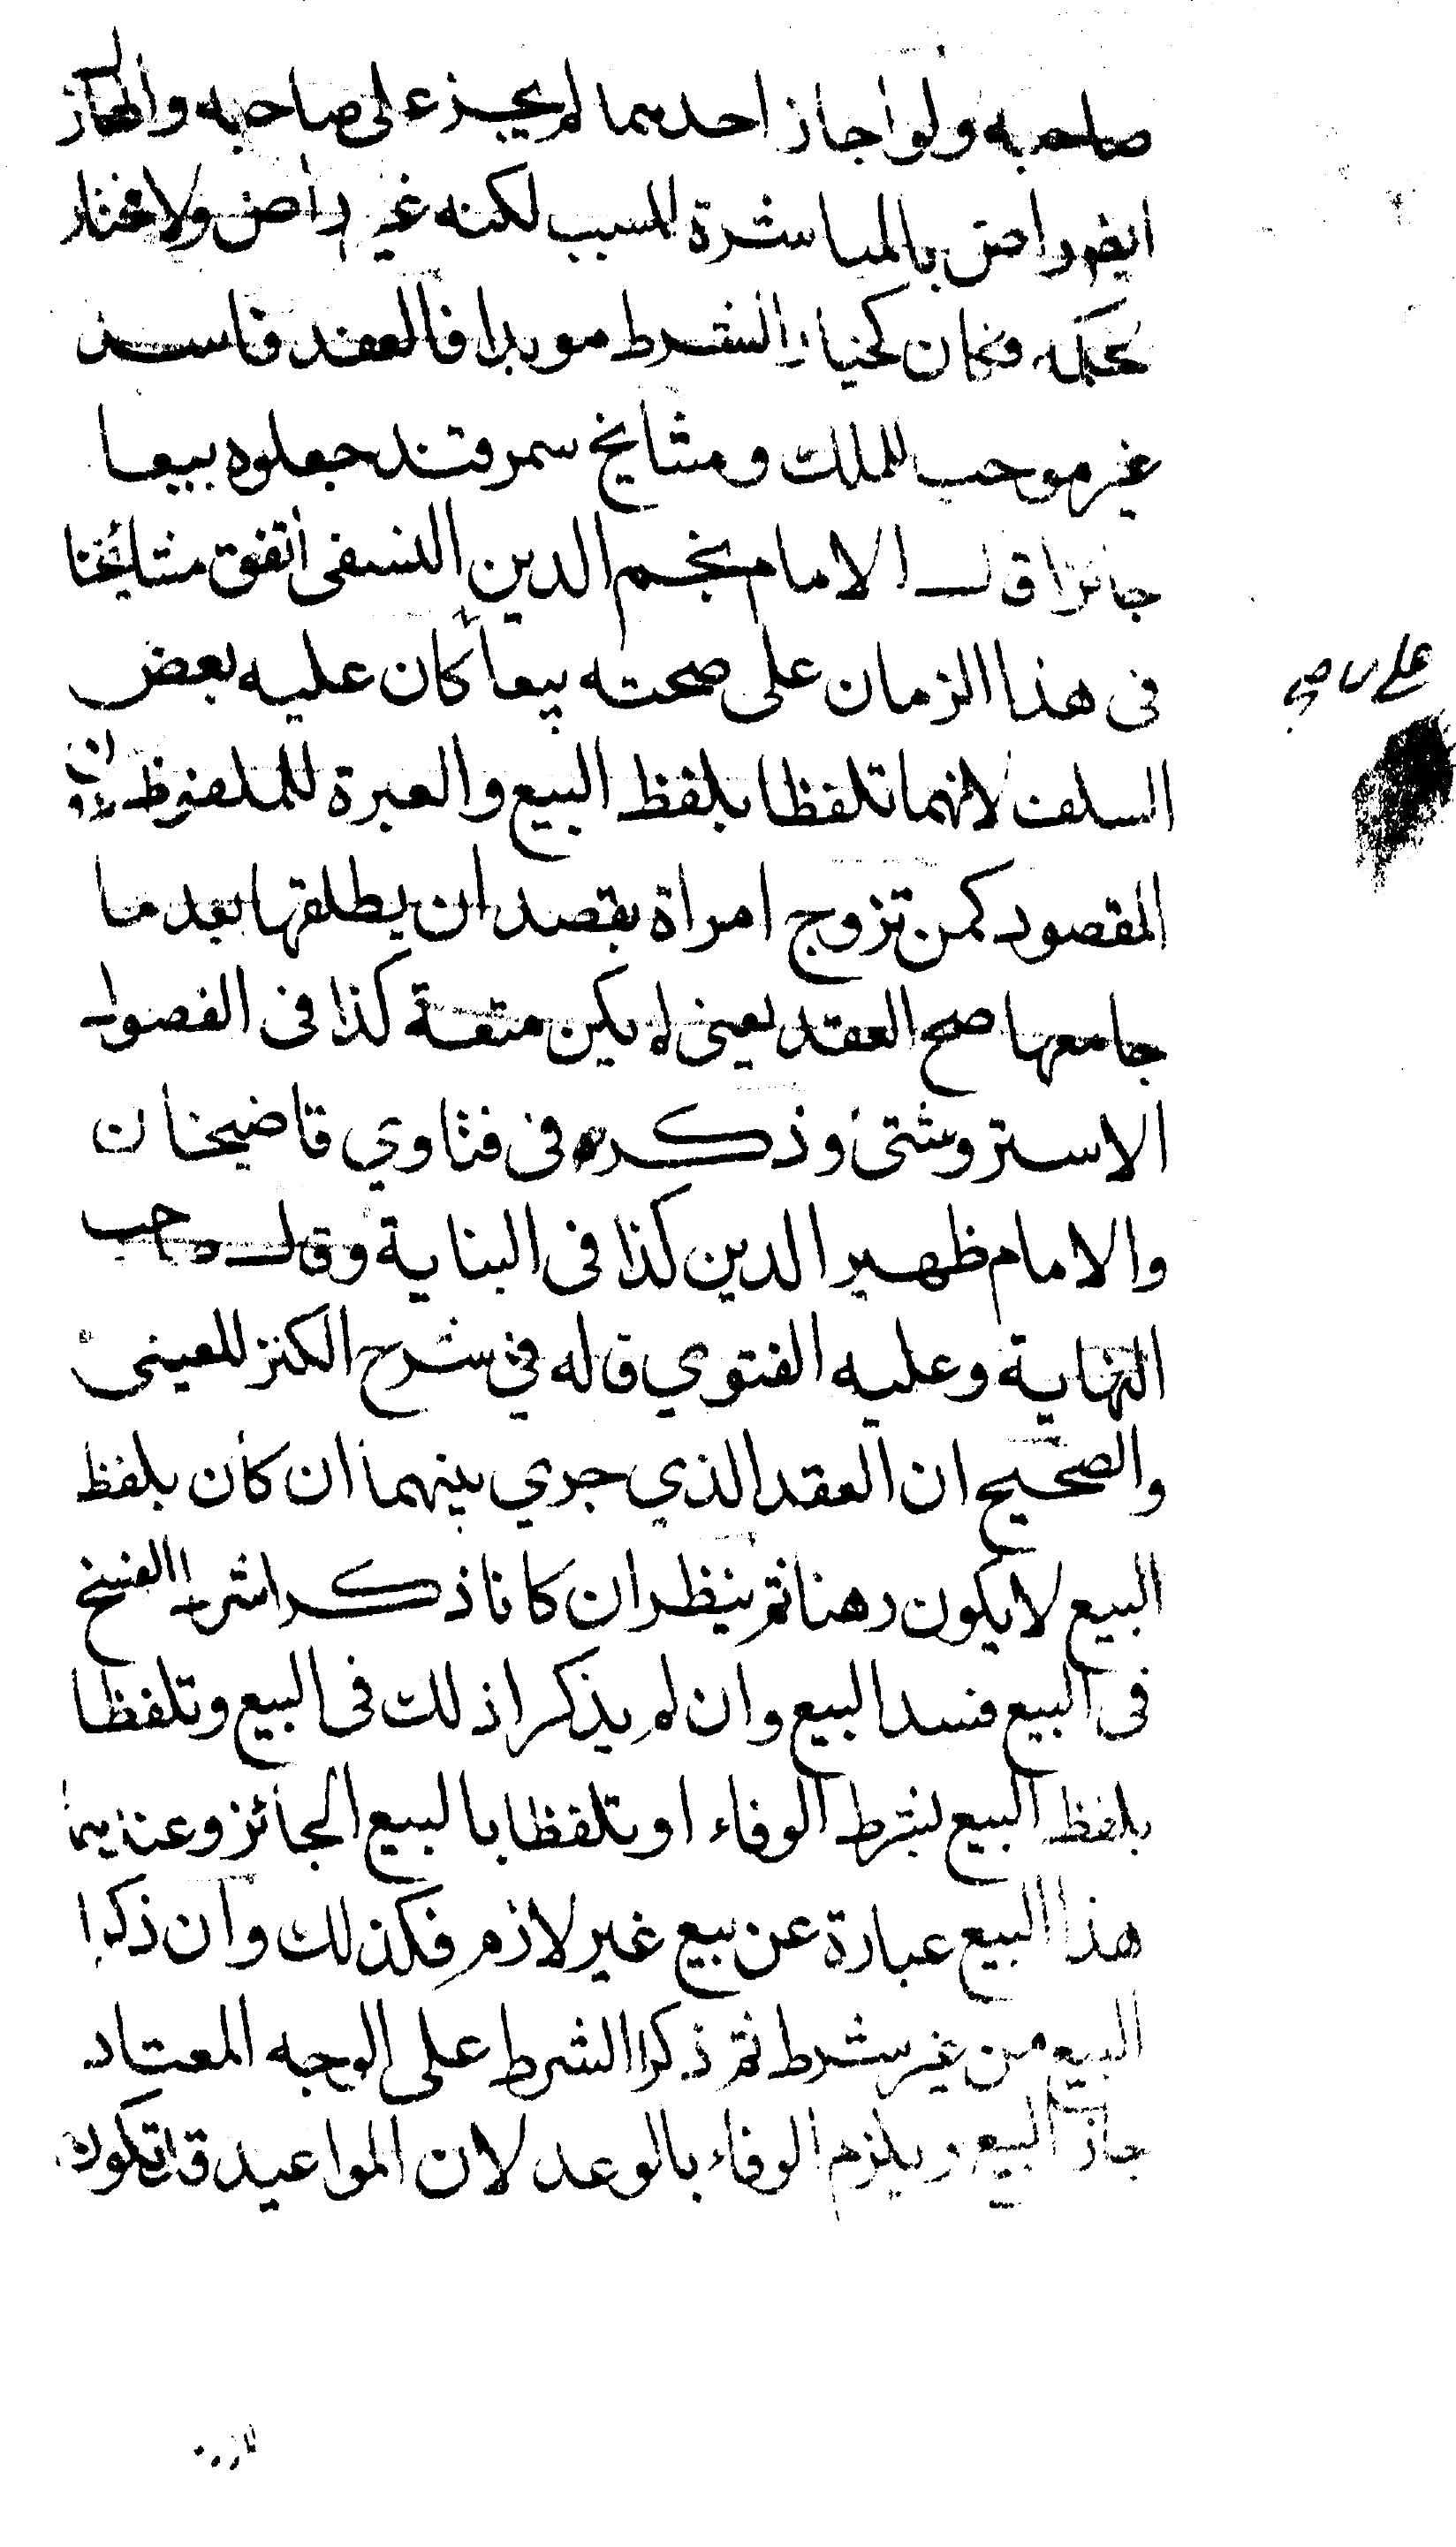 صاحبه ولو اجاز احدهما لم يجز على صاحبه والهازل
ايضا راض بالمباشرة للسبب لكنه غير راض ولا مختار
لحكمه فكان كخيار الشرط موبدا فالعقد فاسد
غير موجب للملك ومشايخ سمرقند جعلوه بيعا
جائزا قال الامام نجم الدين النسفى اتفق مشايخنا
فى هذا الزمان على صحته بيعا كان عليه بعض
السلف لانهما تلفظا بلفظ البيع والعبرة للملفوظ دون
المقصود كمن تزوج امراة بقصد ان يطلقها بعد ما
جامعها صح العقد يعنى لم يكن متعة كذا فى الفصول
الاستروشنى وذكره فى فتاوي قاضيخان
والامام ظهير الدين كذا فى البناية وقال صاحب
النهاية وعليه الفتوي قاله في شرح الكنز للعينى
والصحيح ان العقد الذي جري بينهما ان كان بلفظ
البيع لا يكون رهنا ثم ينظر ان كانا ذكرا شرط الفسخ
فى البيع فسد البيع وان لم يذكرا ذلك فى البيع وتلفظا
بلفظ البيع بشرط الوفاء او تلفظا بالبيع الجائز وعندهما
هذا البيع عبارة عن بيع غير لازم فكذلك وان ذكرا
البيع من غير شرط ثم ذكرا الشرط على الوجه المعتاد
جاز البيع ويلزم الوفاء بالوعد لان المواعيد قد تكون